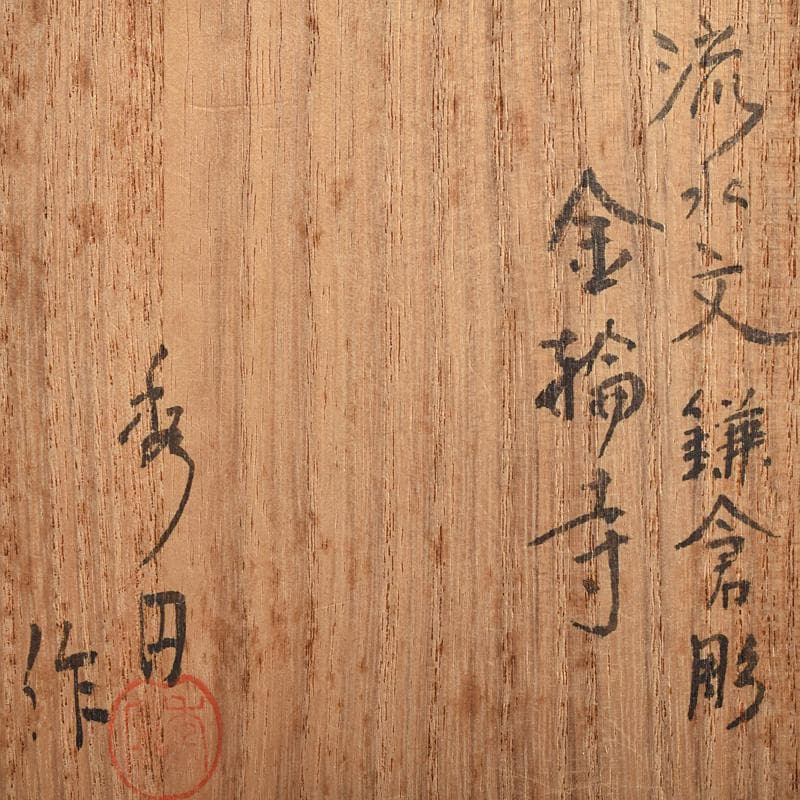 流水文鎌倉彫
金輪寺
秀円
作